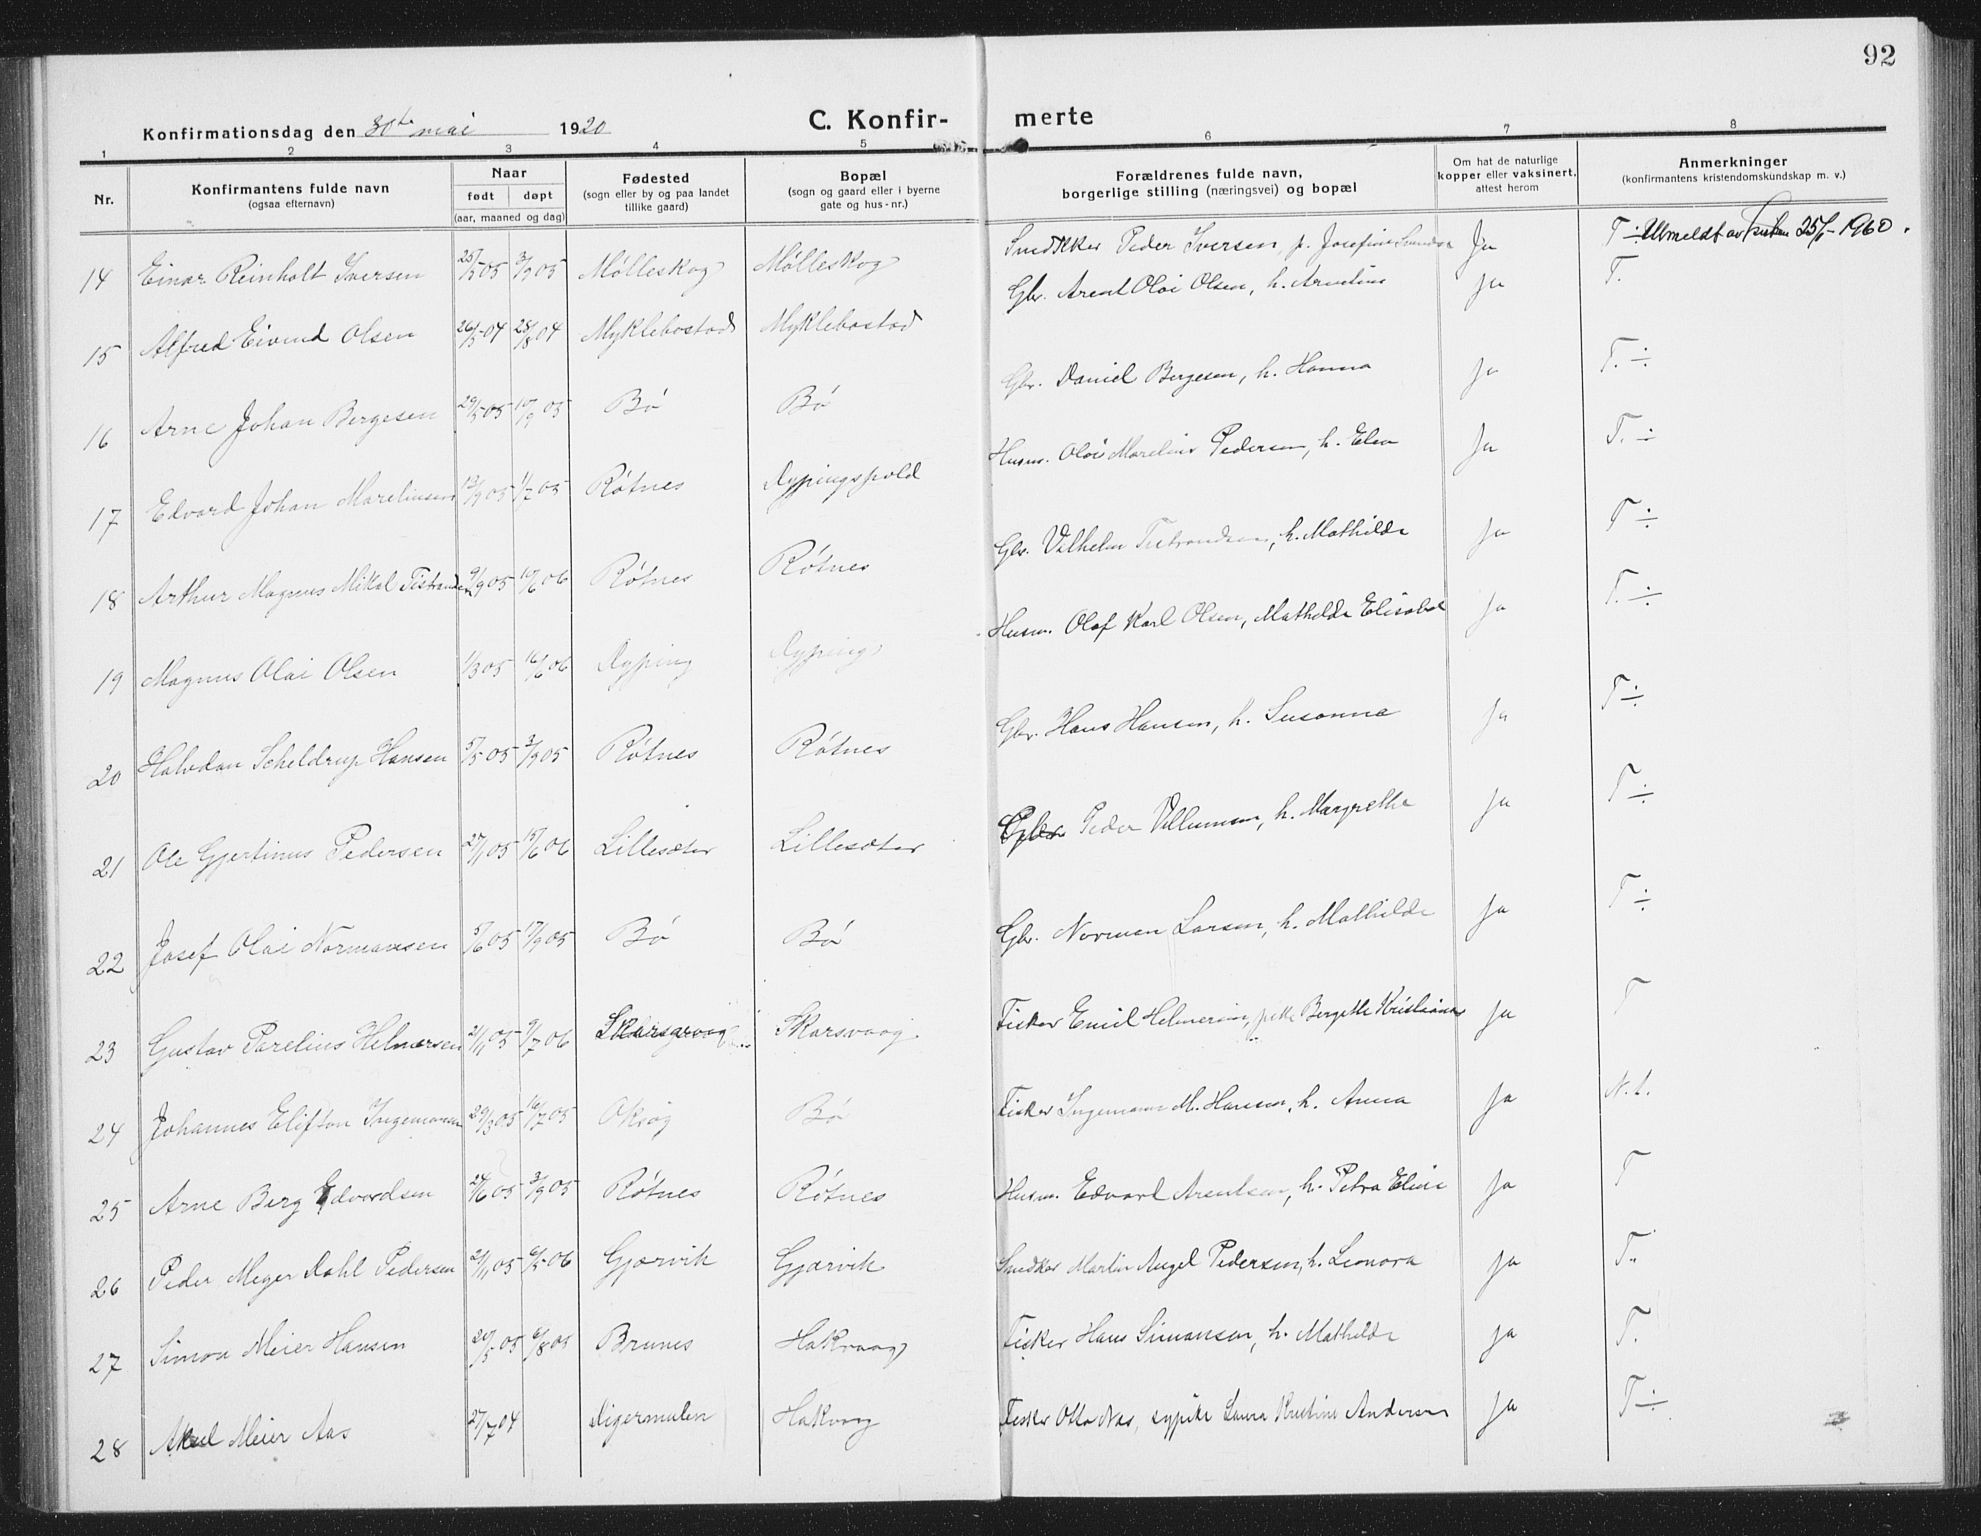 92
Konfirmationsdag den 30te mai 1920 C. Konfir- merte
1 2 3 4 5 6 7 8
Nr. Konfirmantens fulde navn (ogsaa efternavn) Naar født døpt (aar, maaned og dag) Fødested (sogn eller by og paa landet tillike gaard) Bopæl (sogn og gaard eller i byerne gate og hus-nr.) Forældrenes fulde navn, borgerlige stilling (næringsvei) og bopæl Om hat de naturlige kopper eller vaksinert, attest herom Anmerkninger (konfirmantens kristendomskundskap m. v.)
14 Einar Reinholt Iversen 25/5 05 3/9 05 Mølleskog Mølleskog Snedkker Peder Iversen, p. Josefine Ja T ÷ Utmeldt av 1960.
15 Alfred Eivind Olsen 26/5 04 28/8 04 Myklebostad Myklebostad Gbr. Arent Olai Olsen, h. Arntine Ja T.
16 Arne Johan Bergesen 29/5 05 10/9 05 Bø Bø Gbr. Daniel Bergesen, h. Hanna Ja T. ÷
17 Edvard Johan Mareliussen 05 1/7 05 Røtnes Husm. Olai Marelius Pedersen, h. Elen Ja T. ÷
18 Arthur Magnus Mikal 9/9 05 10/6 06 Røtnes Røtnes Gbr. Vilhelm h. Mathilde Ja T ÷
19 Magnus Olai Olsen 1/3 05 16/6 06 Dyping Dyping Husm. Olaf Karl Olsen, Mathilde Elisabet Ja T. ÷
20 Halvdan Scheldrup Hansen 5/5 05 3/9 05 Røtnes Røtnes Gbr. Hans Hansen, h. Susanna Ja T ÷
21 Ole Gjertinus Pedersen 27/1 05 15/6 06 Lillesæter Lillesæter Gbr Peder Villumsen, h. Margrethe Ja T ÷
22 Josef Olai Normansen 5/6 05 17/9 05 Bø Bø Gbr. Norman Larsen, h. Mathilde Ja T ÷
23 Gustav Parelius Helmersen 21/11 05 9/7 06 Skarsvaag Skarsvaag Fisker Emil Helmersen, pike Bergitte Kristiansen Ja T
24 Johannes Elifson Ingemann 29/3 05 16/7 05 Bø Fisker Ingemann M. Hansen, h. Anna Ja N. t.
25 Arne Berg Edvardsen 24/6 05 3/9 05 Røtnes Røtnes Husm. Edvard Arentsen, h. Petra Elise Ja T
26 Peder Meyer Dahl Pedersen 21/11 05 6/5 06 Gjærvik Gjærvik Snedker Martin Angel Pedersen, h. Leonora Ja T.
27 Simon Meier Hansen 05 6/8 05 Brunes Hakvaag Fisker Hans Simonsen, h. Mathilde Ja T.
28 Aksel Meier Aas 27/7 04 Digermulen Hakvaag Fisker Otto Aas, Laura Kristine Andersen Ja T ÷